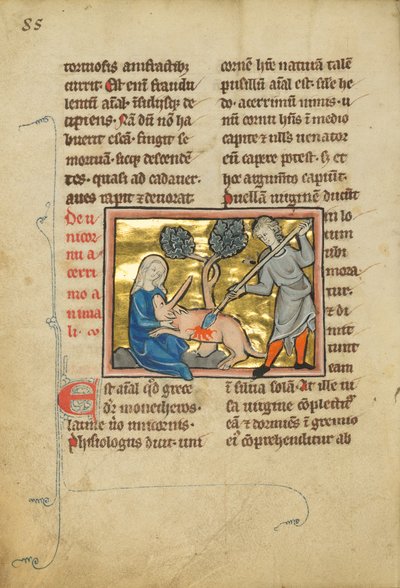 85
tortuosis amfractib;
currit. Est eni fraudu
lentū aīal. īsidijsq; de
cipiens. Nā dū nō ha
buerit escā. fingit se
mortuam. sicq; descenden
tes. quasi ad cadauer.
aues rapit & deuorat.
De u
nicor
nu a
cerri
mo a
nima
li. co
Est aīal qd grece
dr monecheros.
latine uo unicornis.
Phisiologus dicit. uni
cornē hr̄e naturā talē
pusillū aīal est. sile he
do. acerrimū nimis. u
nū cornu hn̄s ī medio
capite & ullꝰ uenator
eum capere potest. s; et
hoc argum̄to capiunt.
Puellā uirginē ducūt
in lo
cum
ubi
mora
tur.
& di
mit
tunt
eam
ī silua solā. At ille ui
sa uirgine cōplectit
eā & dormiēs ī gremio
eiꝰ cōprehenditur ab